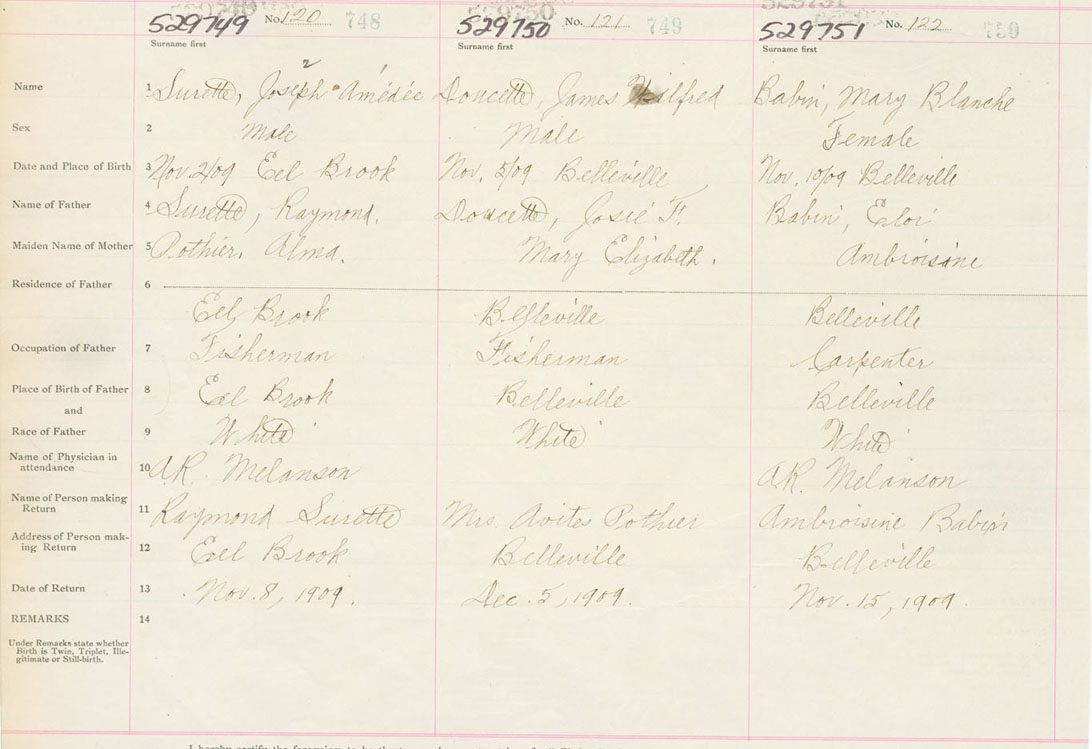 529749 No. 120 748 529750 No. 121 749 529751 No. 122 750
Surname first Surname first Surname first
2 1
Name 1 Surette, Joseph Amédée Doucette, James Wilfred Babin, Mary Blanche
Sex 2 Male Male Female
Date and Place of Birth 3 Nov. 2/09 Eel Brook Nov. 5/09 Belleville Nov. 10/09 Belleville
Name of Father 4 Surette, Raymond. Doucette, Josié F. Babin, Eloi
Maiden Name of Mother 5 Pothier, Alma. Mary Elizabeth. Ambroisine
Residence of Father 6
Eel Brook Belleville Belleville
Occupation of Father 7 Fisherman Fisherman Carpenter
Place of Birth of Father 8 Eel Brook Belleville Belleville
and
Race of Father 9 White White White
Name of Physician in
attendance 10 A.R. Melanson A.R. Melanson
Name of Person making
Return 11 Raymond Surette Mrs. Avites Pothier Ambroisine Babin
Address of Person mak-
ing Return 12 Eel Brook Belleville Belleville
Date of Return 13 Nov. 8, 1909. Dec. 5, 1909. Nov. 15, 1909.
REMARKS 14
Under Remarks state whether
Birth is Twin, Triplet, Ille-
gitimate or Still-birth.